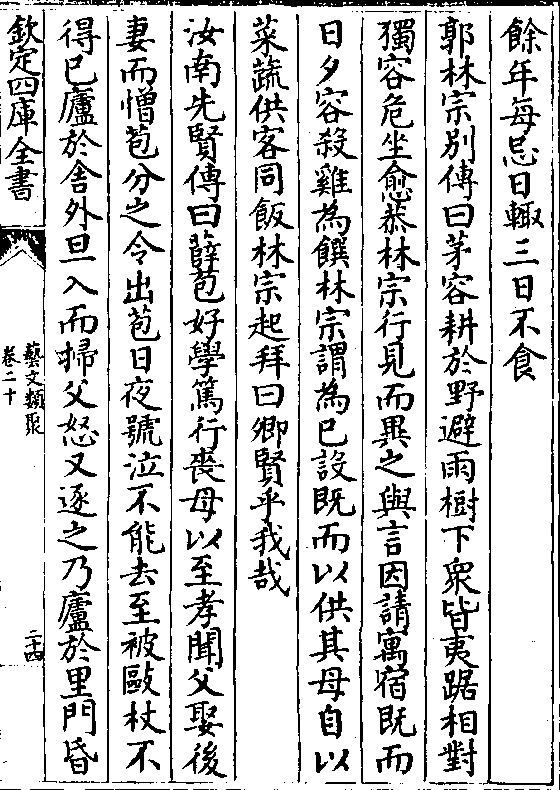 餘年每忌日輙三日不食
郭林宗别傳曰茅容耕於野避雨樹下衆皆夷踞相對
獨容危坐愈恭林宗行見而異之與言因請寓宿既而
日夕容殺雞為饌林宗謂為已設既而以供其母自以
菜蔬供客同飯林宗起拜曰卿賢乎我哉
汝南先賢傳曰薛苞好學篤行喪母以至孝聞父娶後
妻而憎苞分之令出苞日夜號泣不能去至被敺杖不
得已廬於舍外旦入而掃父怒又逐之乃廬於里門昏
欽定四庫全書
藝文類聚
卷二十
二十四